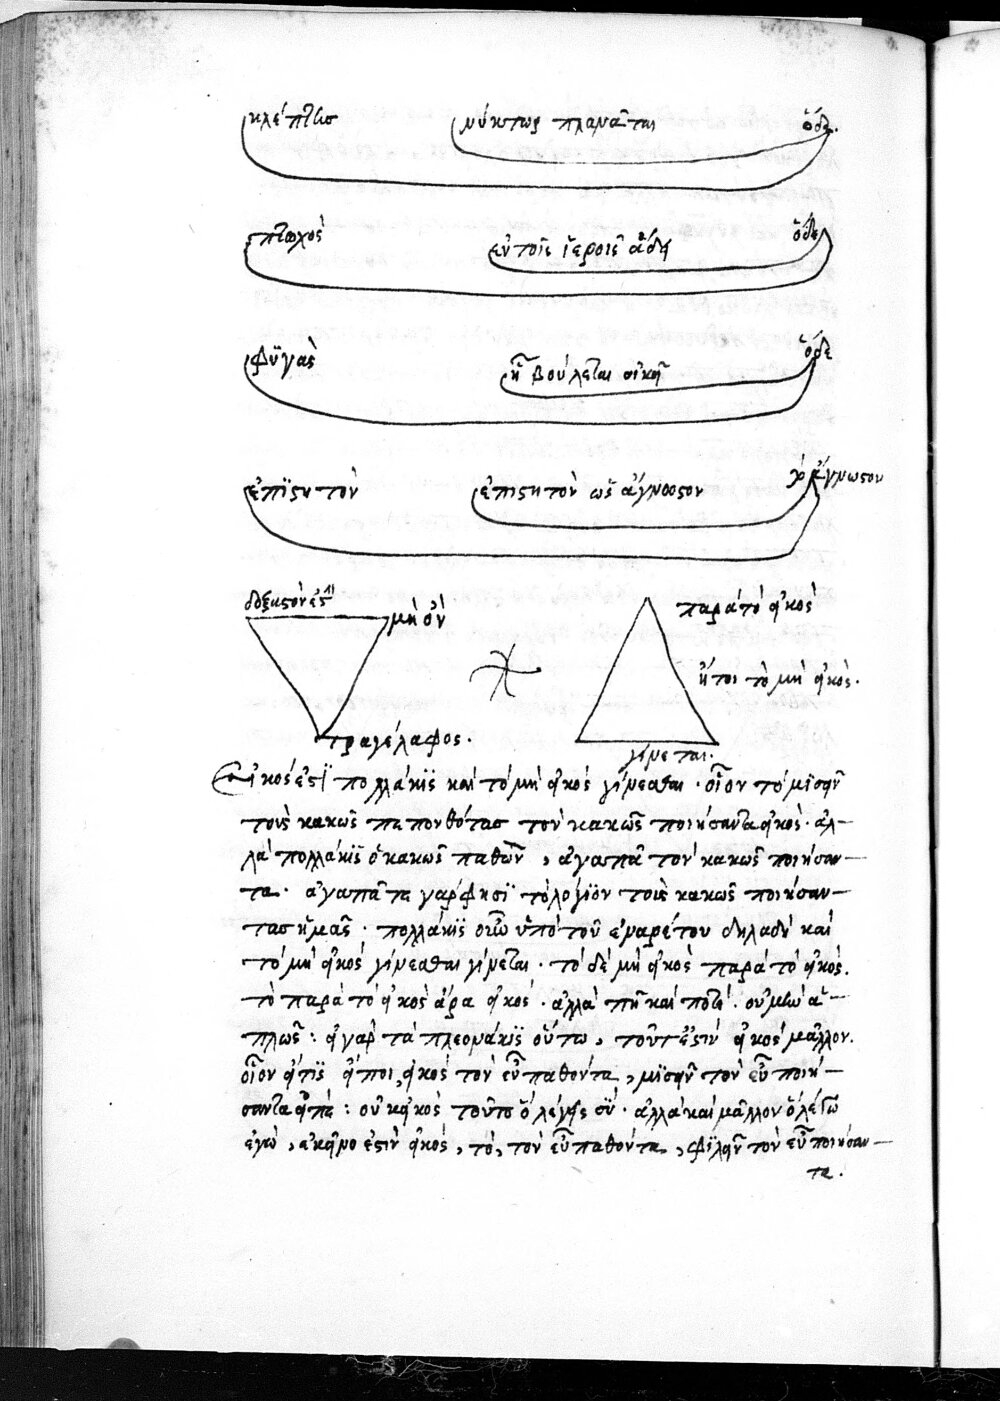 κλέπτης νύκτωρ πλανᾶται ὅδε.
πτωχὸς ἐν τοῖς ἱεροῖς ᾄδει ὅδε
φυγὰς ᾗ βούλεται οἰκεῖ ὅδε
ἐπιστητὸν ἐπιστητὸν ὡς ἄγνωστον τὸ ἄγνωστον
δοξαστὸν ἐστὶ μὴ ὂν
παρὰ τὸ εἰκὸς
ἤτοι τὸ μὴ εἰκὸς.
τραγέλαφος.
γίνεται.
Εἰκός ἐστι πολλάκις καὶ τὸ μὴ εἰκὸς γίνεσθαι · οἷον τὸ μισεῖν
τοὺς κακῶς πεπονθότας τὸν κακῶς ποιήσαντα εἰκὸς · ἀλ-
λὰ πολλάκις ὁ κακῶς παθὼν, ἀγαπᾶ τὸν κακῶς ποιήσαν-
τα · ἀγαπᾶτε γάρ φησι τὸ λόγιον τοὺς κακῶς ποιήσαν-
τας ἡμᾶς · πολλάκις οὖν ὑπὸ τοῦ ἐναρέτου δηλαδὴ καὶ
τὸ μὴ εἰκὸς γίνεσθαι γίνεται · τὸ δὲ μὴ εἰκὸς παρὰ τὸ εἰκὸς.
τὸ παρὰ τὸ εἰκὸς ἄρα εἰκὸς · ἀλλὰ πῆ καὶ ποτὲ · οὐ μὴν ἁ-
πλῶς : εἰ γὰρ τὰ πλεονάκις οὕτω, τοῦτ' ἐστὶν εἰκὸς μᾶλλον.
οἷον εἴ τις εἴποι, εἰκὸς τὸν εὖ παθόντα, μισεῖν τὸν εὖ ποιή-
σαντα εἰπὲ : οὐκ εἰκὸς τοῦτο ὃ λέγεις σὺ · ἀλλὰ καὶ μᾶλλον ὃ λέγω
ἐγὼ, ἐκεῖνο ἐστὶν εἰκὸς, τὸ, τὸν εὖ παθόντα, φιλεῖν τὸν εὖ ποιήσαν-
τα.